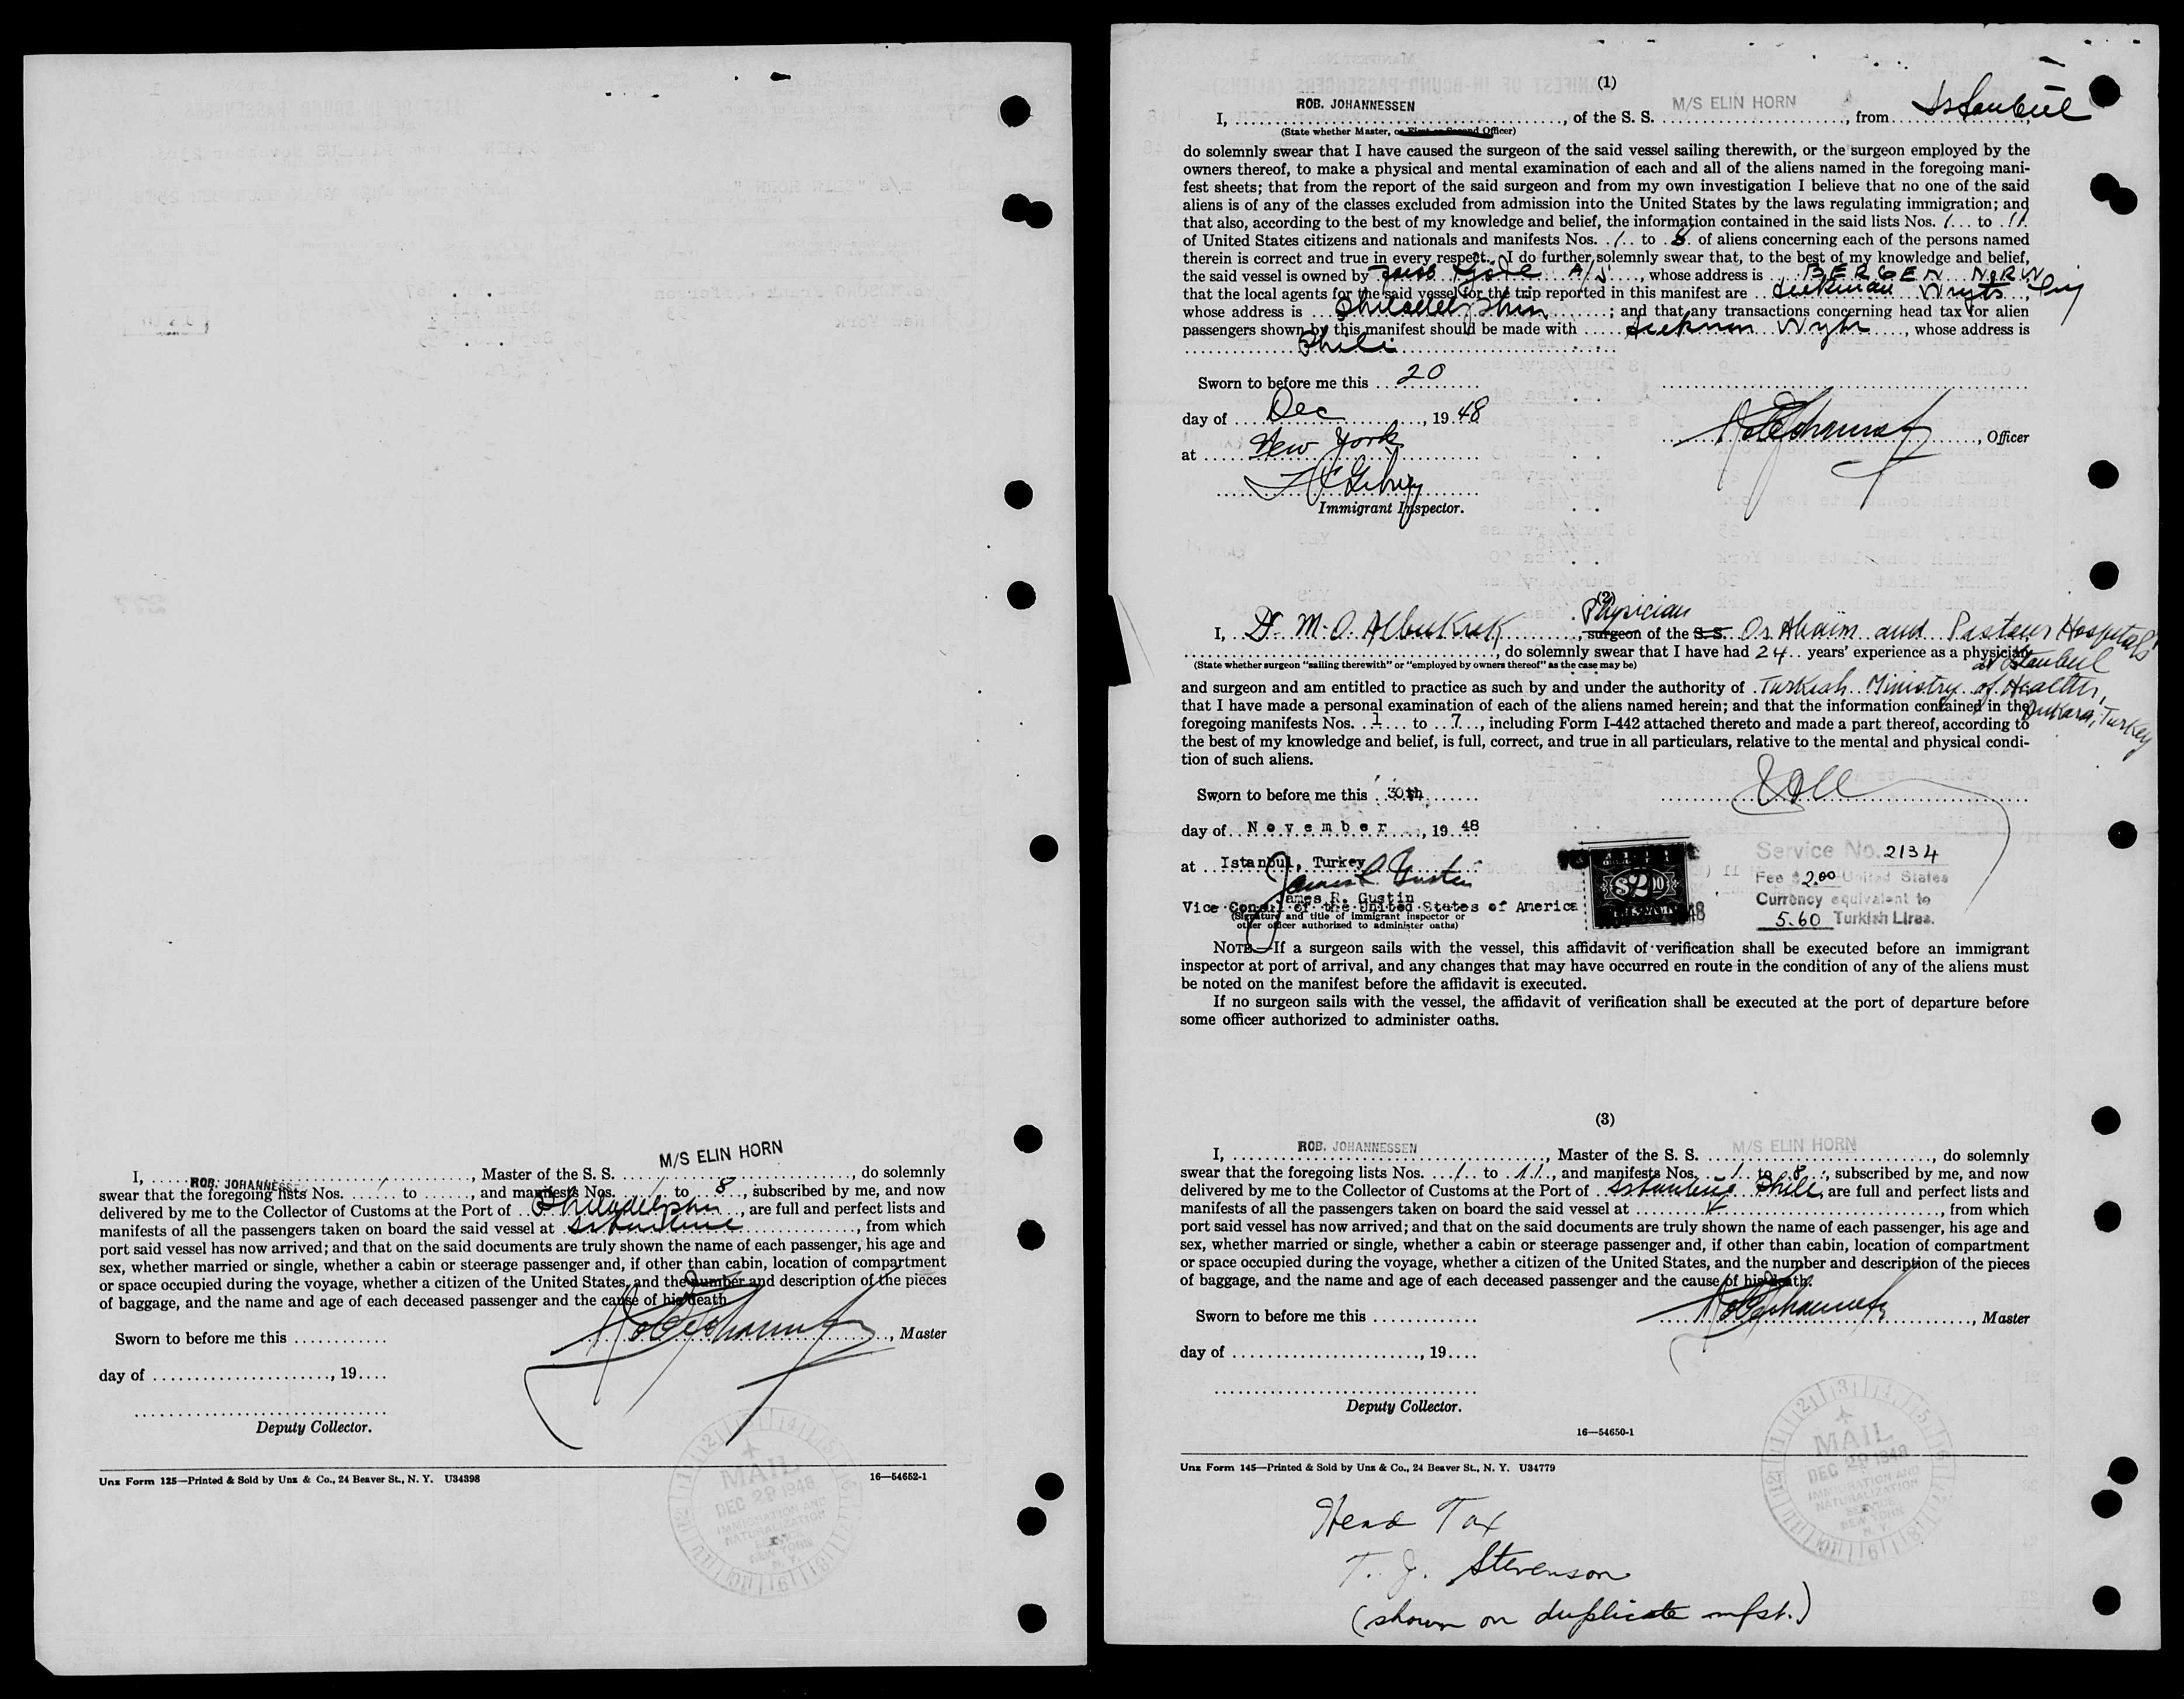 M/S ELIN HORN
I, ROB. JOHANNESSE, Master of the S. S., do solemnly
swear that the foregoing lists Nos. 1 to, and manifests Nos. 1 to 8, subscribed by me, and now
delivered by me to the Collector of Customs at the Port of Philadelphia, are full and perfect lists and
manifests of all the passengers taken on board the said vessel at, from which
port said vessel has now arrived; and that on the said documents are truly shown the name of each passenger, his age and
sex, whether married or single, whether a cabin or steerage passenger and, if other than cabin, location of compartment
or space occupied during the voyage, whether a citizen of the United States, and the number and description of the pieces
of baggage, and the name and age of each deceased passenger and the cause of his death
Sworn to before me this
, Master
day of, 19
Deputy Collector.
Unz Form 125—Printed & Sold by Unz & Co., 24 Beaver St., N. Y. U34398
16—54652-1
MAIL
DEC 29 1948
IMMIGRATION AND
NATURALIZATION
SERVICE
NEW YORK
N. Y.
(1)
I, ROB. JOHANNESSEN, of the S. S. M/S ELIN HORN, from Istanbul
(State whether Master, or First or Second Officer)
do solemnly swear that I have caused the surgeon of the said vessel sailing therewith, or the surgeon employed by the
owners thereof, to make a physical and mental examination of each and all of the aliens named in the foregoing mani-
fest sheets; that from the report of the said surgeon and from my own investigation I believe that no one of the said
aliens is of any of the classes excluded from admission into the United States by the laws regulating immigration; and
that also, according to the best of my knowledge and belief, the information contained in the said lists Nos. 1 to 11
of United States citizens and nationals and manifests Nos. 1 to 8 of aliens concerning each of the persons named
therein is correct and true in every respect. I do further solemnly swear that, to the best of my knowledge and belief,
the said vessel is owned by A/S, whose address is BERGEN NORW
that the local agents for the said vessel for the trip reported in this manifest are
whose address is; and that any transactions concerning head tax for alien
passengers shown by this manifest should be made with, whose address is
Phili
Sworn to before me this 20
day of Dec, 1948
, Officer
at New York
Immigrant Inspector.
(2)
Physician
I, Dr. M. O. Albukrek, surgeon of the S.S. Or Ahaim and Pasteur Hospitals
, do solemnly swear that I have had 24 years' experience as a physician
at Istanbul
(State whether surgeon "sailing therewith" or "employed by owners thereof" as the case may be)
and surgeon and am entitled to practice as such by and under the authority of Turkish Ministry of Health,
Ankara, Turkey
that I have made a personal examination of each of the aliens named herein; and that the information contained in the
foregoing manifests Nos. 1 to 7, including Form I-442 attached thereto and made a part thereof, according to
the best of my knowledge and belief, is full, correct, and true in all particulars, relative to the mental and physical condi-
tion of such aliens.
Sworn to before me this 30th
day of November, 1948
at Istanbul, Turkey
James R. Gustin
James R. Gustin
Vice Consul of the United States of America
(Signature and title of immigrant inspector or
other officer authorized to administer oaths)
$2.00
Service No. 2134
Fee $2.00 United States
Currency equivalent to
5.60 Turkish Liras.
NOTE.—If a surgeon sails with the vessel, this affidavit of verification shall be executed before an immigrant
inspector at port of arrival, and any changes that may have occurred en route in the condition of any of the aliens must
be noted on the manifest before the affidavit is executed.
If no surgeon sails with the vessel, the affidavit of verification shall be executed at the port of departure before
some officer authorized to administer oaths.
(3)
I, ROB. JOHANNESSEN, Master of the S. S. M/S ELIN HORN, do solemnly
swear that the foregoing lists Nos. 1 to 11, and manifests Nos. 1 to 8, subscribed by me, and now
delivered by me to the Collector of Customs at the Port of Phili, are full and perfect lists and
manifests of all the passengers taken on board the said vessel at, from which
port said vessel has now arrived; and that on the said documents are truly shown the name of each passenger, his age and
sex, whether married or single, whether a cabin or steerage passenger and, if other than cabin, location of compartment
or space occupied during the voyage, whether a citizen of the United States, and the number and description of the pieces
of baggage, and the name and age of each deceased passenger and the cause of his death.
Sworn to before me this
, Master
day of, 19
Deputy Collector.
16—54650-1
Unz Form 145—Printed & Sold by Unz & Co., 24 Beaver St., N. Y. U34779
MAIL
DEC 29 1948
IMMIGRATION AND
NATURALIZATION
SERVICE
NEW YORK
N. Y.
Head Tax
T. J. Stevenson
(shown on duplicate mfst.)